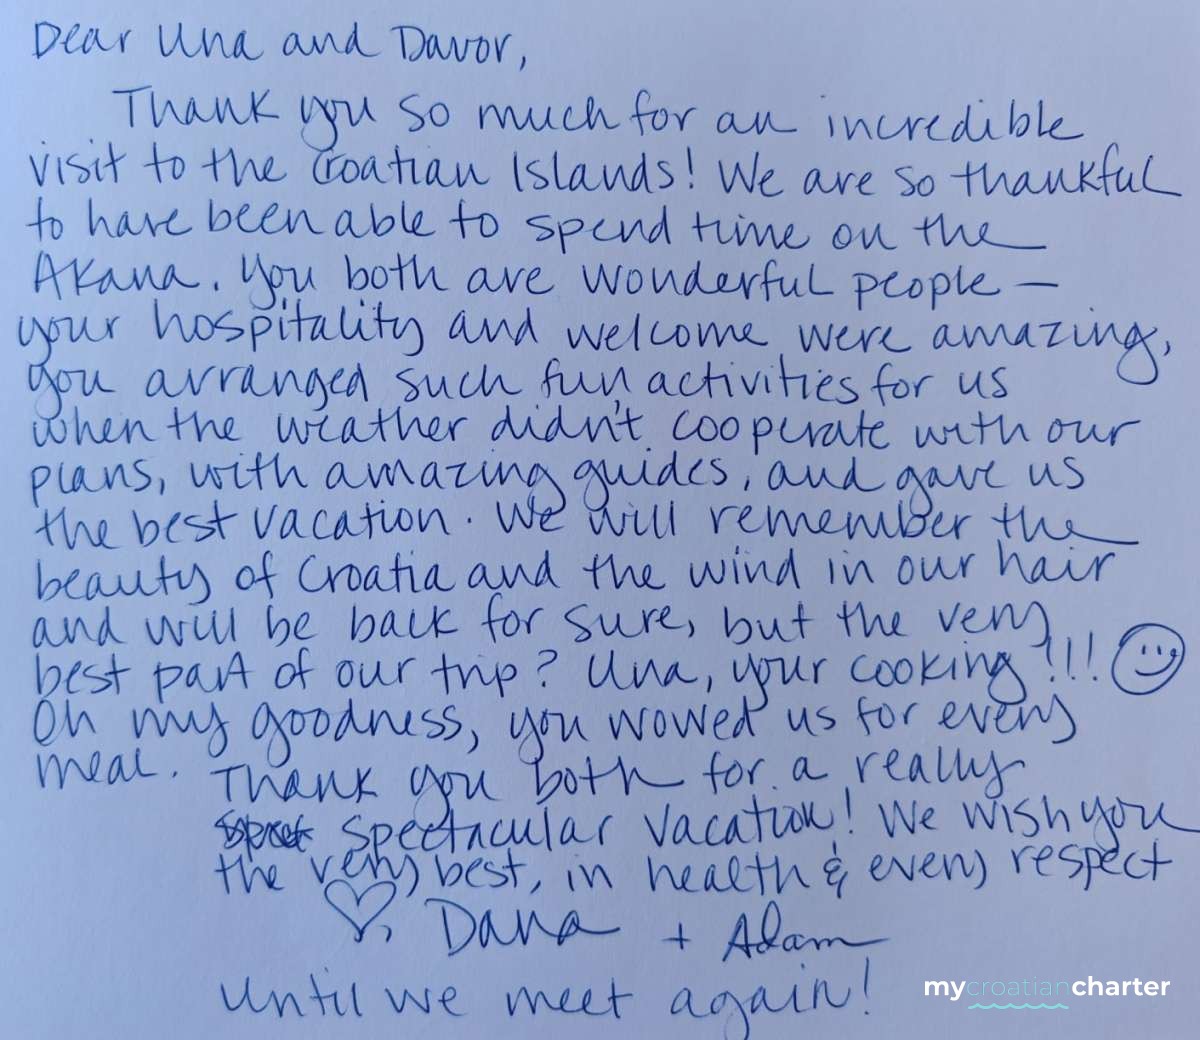 Dear Una and Davor,
Thank you so much for an incredible
visit to the Croatian Islands! We are so thankful
to have been able to spend time on the
Akana. You both are wonderful people —
your hospitality and welcome were amazing,
you arranged such fun activities for us
when the weather didn't cooperate with our
plans, with amazing guides, and gave us
the best vacation. We will remember the
beauty of Croatia and the wind in our hair
and will be back for sure, but the very
best part of our trip? Una, your cooking!!!
Oh my goodness, you wowed us for every
meal.
Thank you both for a really
spectacular vacation! We wish you
the very best, in health & every respect
♡, Dana + Adam
Until we meet again!
mycroatiancharter